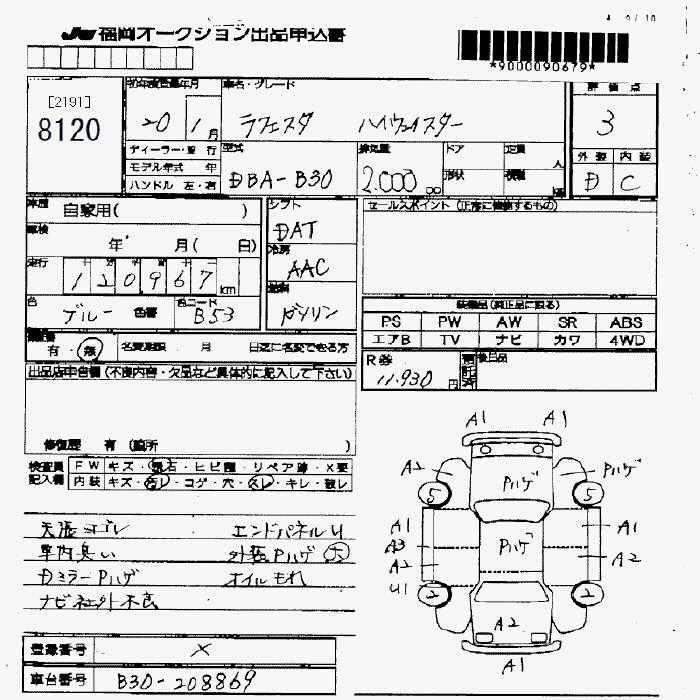 JU 福岡オークション出品申込書
*9000090679*
[2191]
8120
初年度登録年月
20年1月
車名・グレード
ラフェスタ ハイウェイスター
評価点
3
ディーラー・並行
モデル年式 年
ハンドル 左・右
型式
DBA-B30
排気量
2.000 cc
ドア
形状
定員 人
積載
外装 内装
D C
車歴 自家用( )
車検 年 月( 日)
走行 120967 km
シフト
DAT
冷房
AAC
燃料
ガソリン
セールスポイント (正常に稼働するもの)
色 ブルー 色替
色コード
B53
装備品(純正品に限る)
PS PW AW SR ABS
エアB TV ナビ カワ 4WD
有・無
名変期限 月 日迄に名変できる方
R券
11,930 円
後日品
出品店申告欄(不良内容・欠品など具体的に記入して下さい)
修復歴 有(箇所 )
検査員記入欄
FW キズ・飛石・ヒビ割・リペア跡・X要
内装 キズ・汚レ・コゲ・穴・スレ・キレ・破レ
天張ヨゴレ エンドパネルU
車内臭い 外装Pハゲ
DミラーPハゲ オイルもれ
ナビ社外不良
登録番号 ×
車台番号 B30-208869
A1 A1
A2 Pハゲ Pハゲ
5 5
A1 A1
A3 Pハゲ
A2 A2
U1
2 2
A2
A1